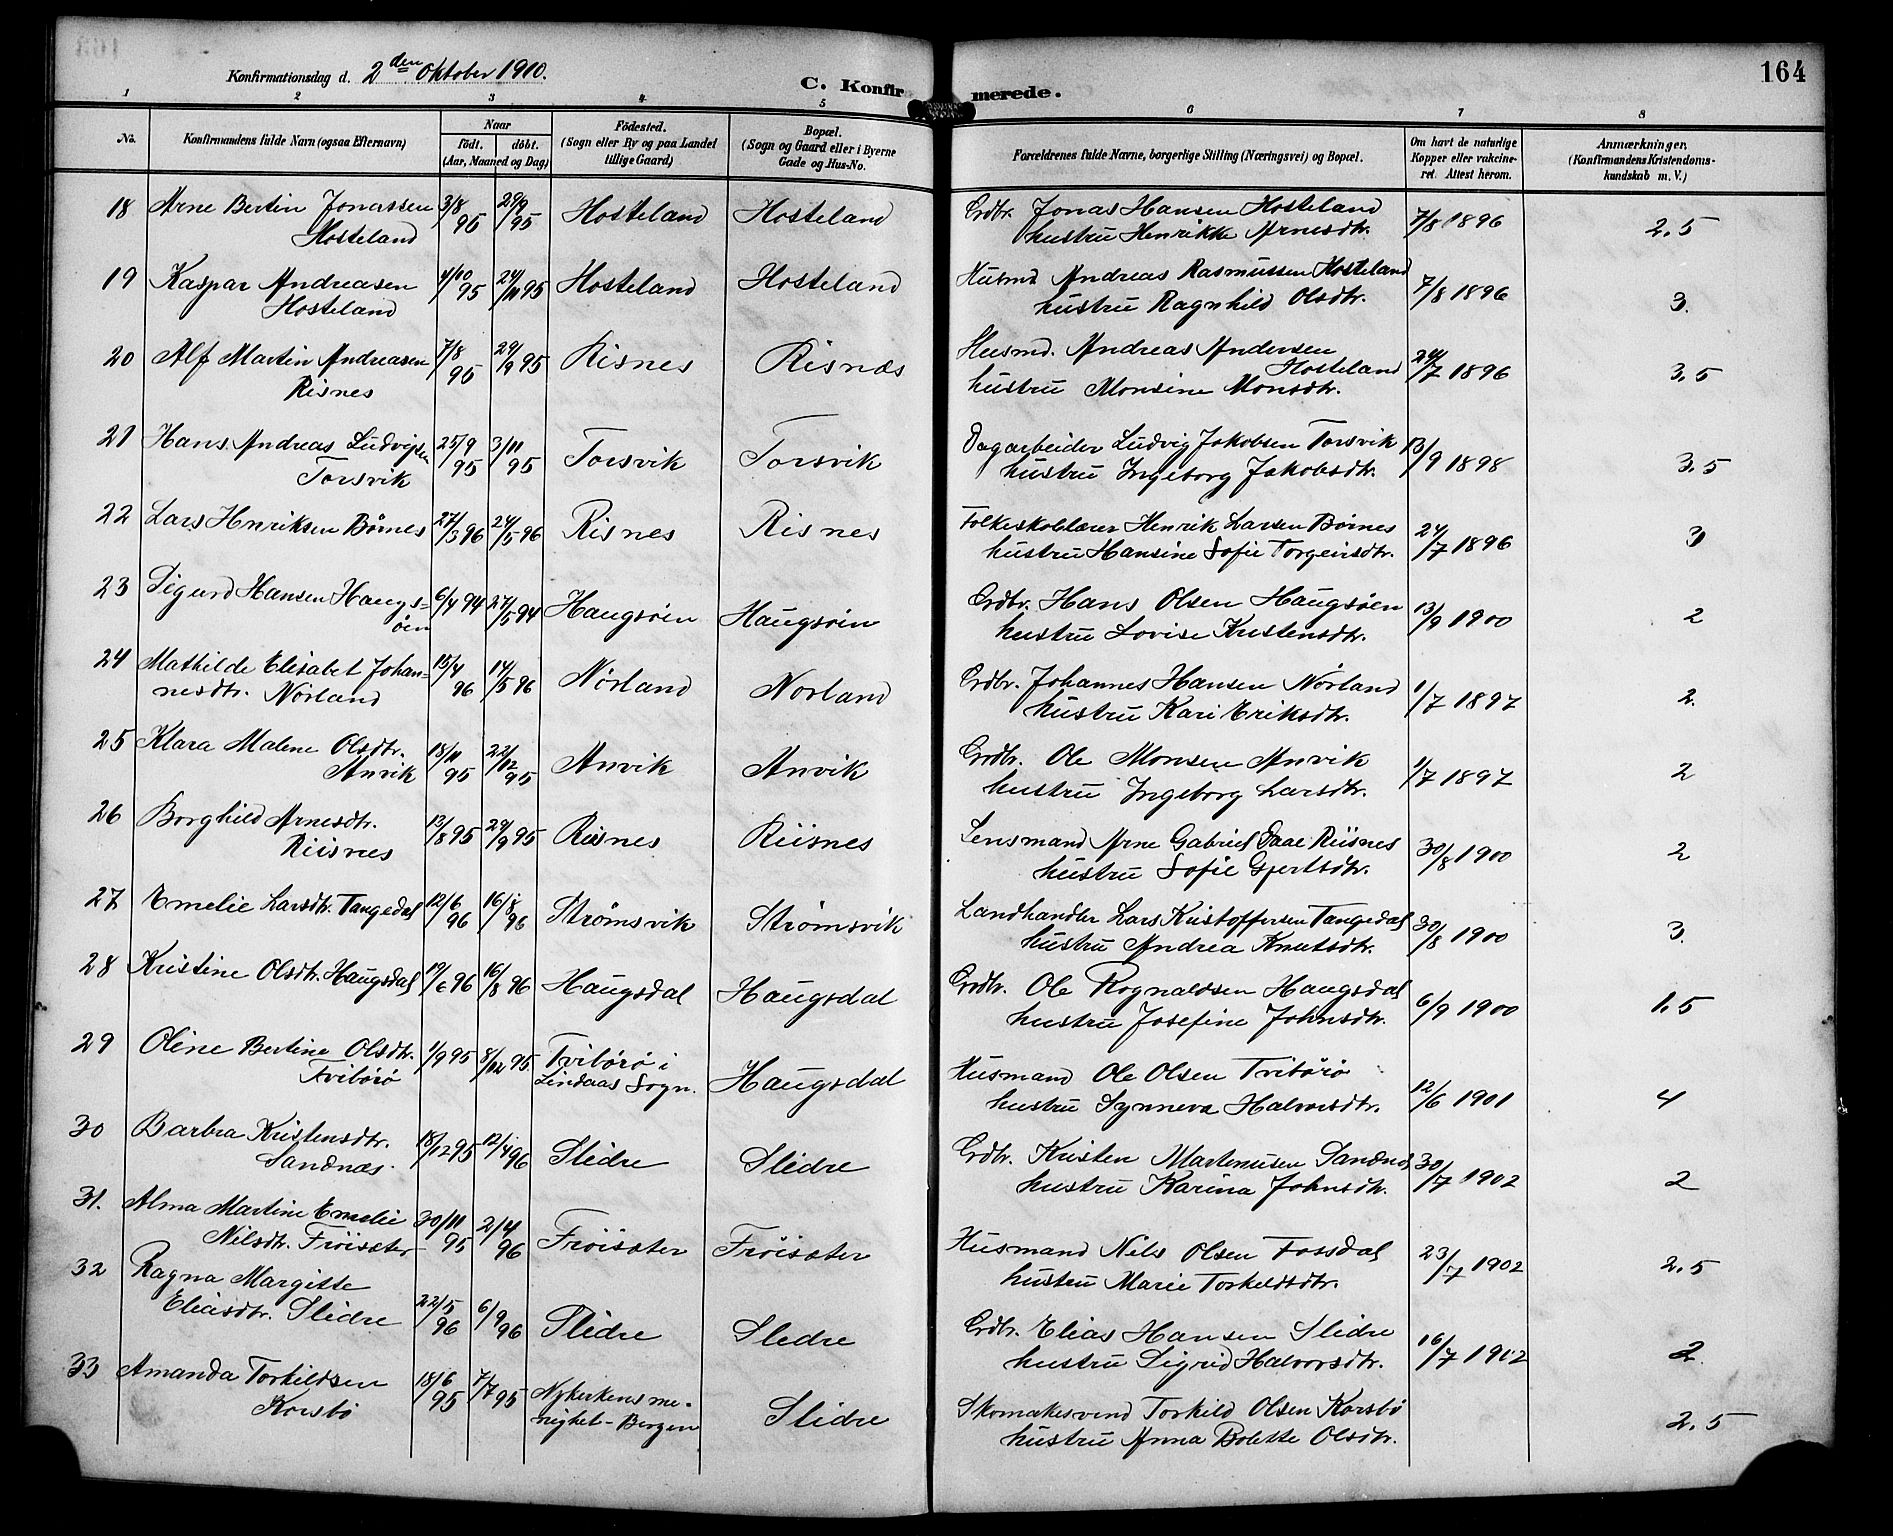 Konfirmationsdag d. 2den Oktober 1910.
C. Konfirmerede.
164
1 2 3 4 5 6 7 8
No. Konfirmandens fulde Navn (ogsaa Efternavn) Naar født. døbt. (Aar, Maaned og Dag) Fødested. (Sogn eller By og paa Landet tillige Gaard) Bopæl. (Sogn og Gaard eller i Byerne Gade og Hus-No. Forældrenes fulde Navne, borgerlige Stilling (Næringsvei) og Bopæl. Om havt de naturlige Kopper eller vakcineret. Attest herom. Anmærkninger. (Konfirmandens Kristendomskundskab m. V.)
18 Arne Bertin Jonassen 3/8 95 29/9 95 Hosteland Hosteland Grdbr. Jonas Hansen Hosteland 7/8 1896 2.5
Hosteland hustru Henrikke Arnesdtr.
19 Kaspar Andreasen 4/10 95 24/11 95 Hosteland Hosteland Husmd Andreas Rasmussen Hosteland 7/8 1896 3.
Hosteland hustru Ragnhild Olsdtr.
20 Alf Martin Andreasen 7/8 95 29/9 95 Risnes Risnæs Husmd. Andreas Andersen Hosteland 24/7 1896 3.5
Risnes hustru Monsine Monsdtr.
21 Hans Andreas Ludvigsen 25/9 95 3/11 95 Torsvik Torsvik Dagarbeider Ludvig Jakobsen Torsvik 13/9 1898 3.5
Torsvik hustru Ingeborg Jakobsdtr.
22 Lars Henriksen Børnes 27/3 96 24/5 96 Risnes Risnes Folkeskolelærer Henrik Larsen Børnes 24/7 1896 3
hustru Hansine Sofie Torgeirsdtr.
23 Sigurd Hansen Haugs= 6/4 94 27/5 94 Haugsøen Haugsøen Grdbr. Hans Olsen Haugsøen 13/9 1900 2
øen hustru Lovise Kristensdtr.
24 Mathilde Elisabet Johan= 15/4 96 14/5 96 Nørland Norland Grdbr. Johannes Hansen Nørland 1/7 1897 2.
nesdtr. Nørland hustru Kari Eriksdtr.
25 Klara Malene Olsdtr. 18/11 95 22/12 95 Anvik Anvik Grdbr. Ole Monsen Anvik 1/7 1897 2
Anvik hustru Ingeborg Larsdtr.
26 Borghild Arnesdtr. 13/8 95 29/9 95 Risnes Riisnes Lensmand Arne Gabriel Daae Riisnes 30/8 1900 2
Riisnes hustru Sofie Gjertsdtr.
27 Emelie Larsdtr. Tangedal 12/6 96 16/8 96 Strømsvik Strømsvik Landhandler Lars Kristoffersen Tangedal 30/8 1900 3.
hustru Andrea Knutsdtr.
28 Kristine Olsdtr. Haugsdal 19/6 96 16/8 96 Haugsdal Haugsdal Grdbr. Ole Rognaldsen Haugsdal 6/9 1900 1.5
hustru Josefine Johnsdtr.
29 Oline Bertine Olsdtr. 1/9 95 8/12 95. Tvibørø i Haugsdal Husmand Ole Olsen Tvibørø 12/6 1901 4
Tvibørø Lindaas Sogn. hustru Synneva Halvorsdtr.
30 Barbra Kristensdtr. 18/12 95 12/4 96 Slidre Slidre Grdbr. Kristen Martenusen Sandnæs 30/7 1902 2
Sandnæs. hustru Karina Johnsdtr.
31. Alma Martine Emelie 30/11 95 2/4 96 Frøisæter Frøisæter Husmand Nils Olsen Fossdal 23/7 1902 2.5
Nilsdtr. Frøisæter hustru Marie Torkeldsdtr.
32 Ragna Margitte 22/5 96 6/9 96 Slidre Sledre Grdbr. Elias Hansen Slidre 16/7 1902 2.
Eliasdtr. Slidre hustru Sigrid Halvorsdtr.
33 Amanda Torkildsen 18/6 95 7/7 95 Nykirkens me- Slidre Skomakesvend Torkild Olsen Korsbø 2.5
Korsbø nighet - Bergen hustru Anna Bolette Olsdtr.